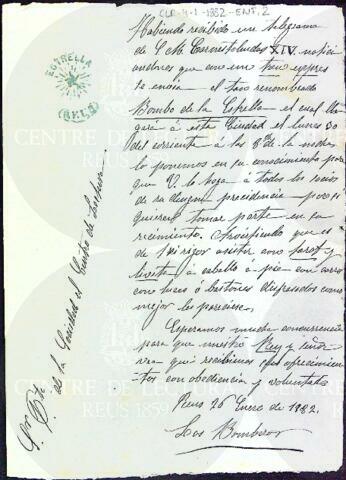 CLR-4-1-1882-ENT.2
ESTRELLA
(REUS)
Habiendo recibido un telegrama
de S. M. Carnestoltendas XIV notici
andonos que con un tren expres
te envia el tan renombrado
Bombo de la Estrella el cual lle
gará á esta Ciudad el lunes 30
del corriente á las 8 de la noche
lo ponemos en su conocimiento para
que V. lo haga á todos los socios
de su digna presidencia por si
quieren tomar parte en su
recimiento. Advirtiendo que es
de rigor asistir con farol y
levita á caballo á pie con carro
con luces ó bastones disfrazados como
mejor les pareciese.
Esperamos mucha concurrencia
para que nuestro Rey y señor
vea que recibimos sus ofrecimien
tos con obediencia y voluntad
Reus 26 Enero de 1882.
Los Bomberos
Sor. Pte. de la Sociedad el Centro de Lectura
CENTRE DE LECTURA
REUS 1859